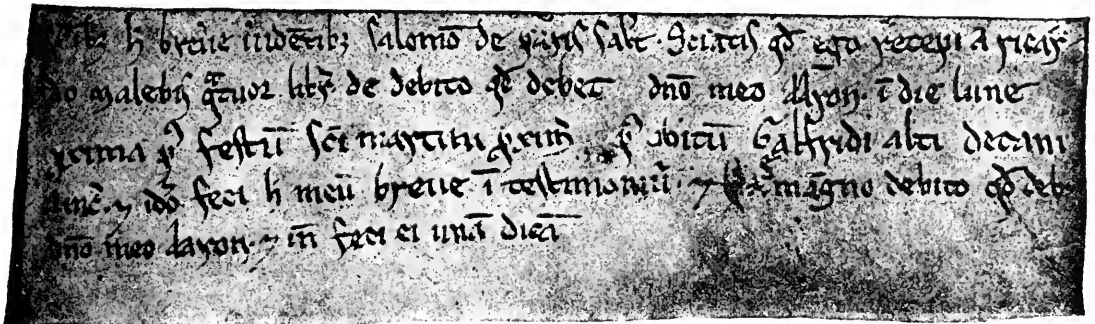 h breue uidētibȝ salomō de paris salt. Sciatis qđ ego recepi a ricar
do malebis q̄tuor libr̄ de debito qđ debet dn̄o meo Aaron. ī die lune
prima p̄ festū sc̄i martini prox̄im p̄ obitū Galfridi alti decani
⁊ idō feci h meū breue ī testimoniū. ⁊ māgno debito qđ deb
dn̄o meo Aaron. ⁊ īn feci ei unā dicā